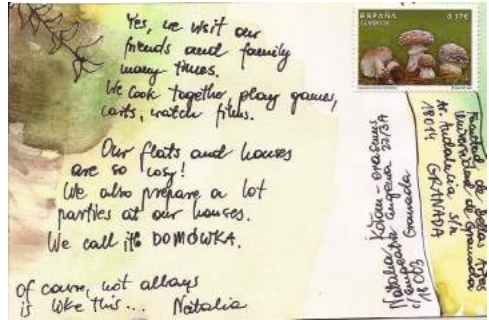 Yes, we visit our
friends and family
many times.
We cook together, play games,
carts, watch films.
Our flats and houses
are so cosy!
We also prepare a lot
parties at our houses.
We call it DOMÓWKA.
of course, not always
is like this... Natalia
ESPAÑA
CORREOS
0,37€
Natalia - erasmus
22/3A
Granada
18003
Facultad de Bellas Artes
Universidad de Granada
Av. Andalucía s/n
18014 GRANADA